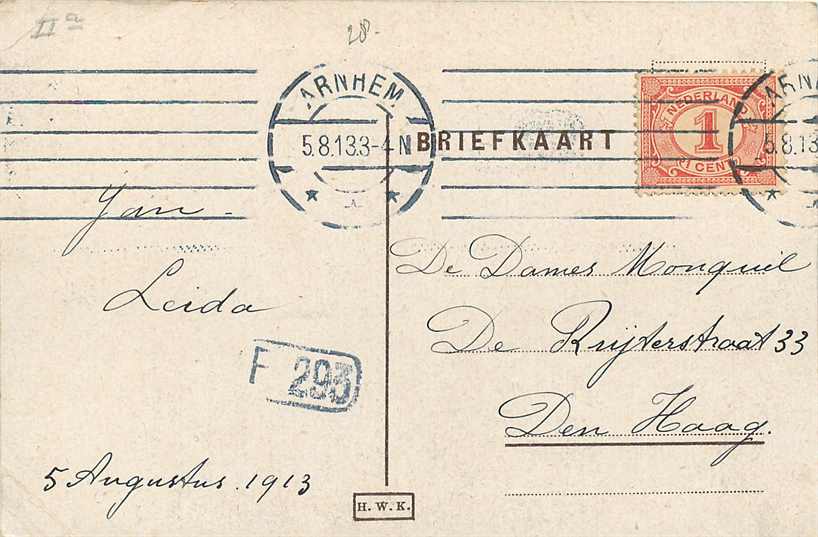 IIa
28-
ARNHEM
5.8.13 3-4 N
BRIEFKAART
NEDERLAND
1
1 CENT
ARN
5.8.13
Jan -
Leida
F 293
5 Augustus. 1913
De Dames Monquil
De Ruyterstraat 33
Den Haag.
H. W. K.